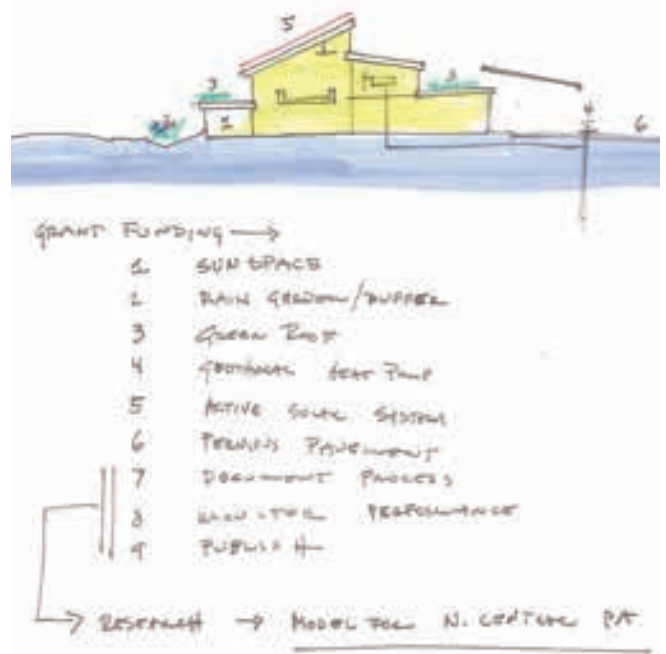 5
3
3
4
6
2
1
GRANT FUNDING →
1 SUN SPACE
2 RAIN GARDEN/BUFFER
3 GREEN ROOF
4 GEOTHERMAL HEAT PUMP
5 ACTIVE SOLAR SYSTEM
6 PERVIOUS PAVEMENT
7 DOCUMENT PROCESS
8 MONITOR PERFORMANCE
9 PUBLISH
→ RESEARCH → MODEL FOR N. CENTRAL PA.